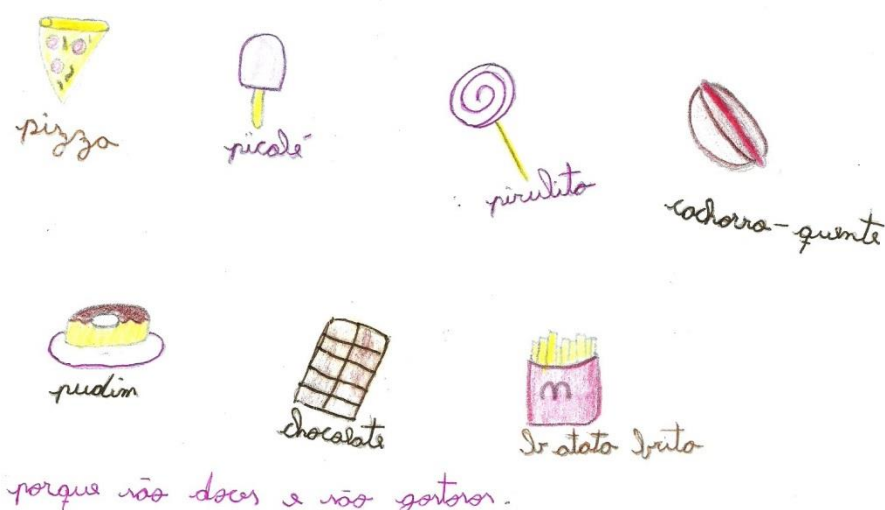 pizza
picolé
pirulito
cachorro-quente
pudim
chocolate
batata brita
m
porque são doces e são gostosos.